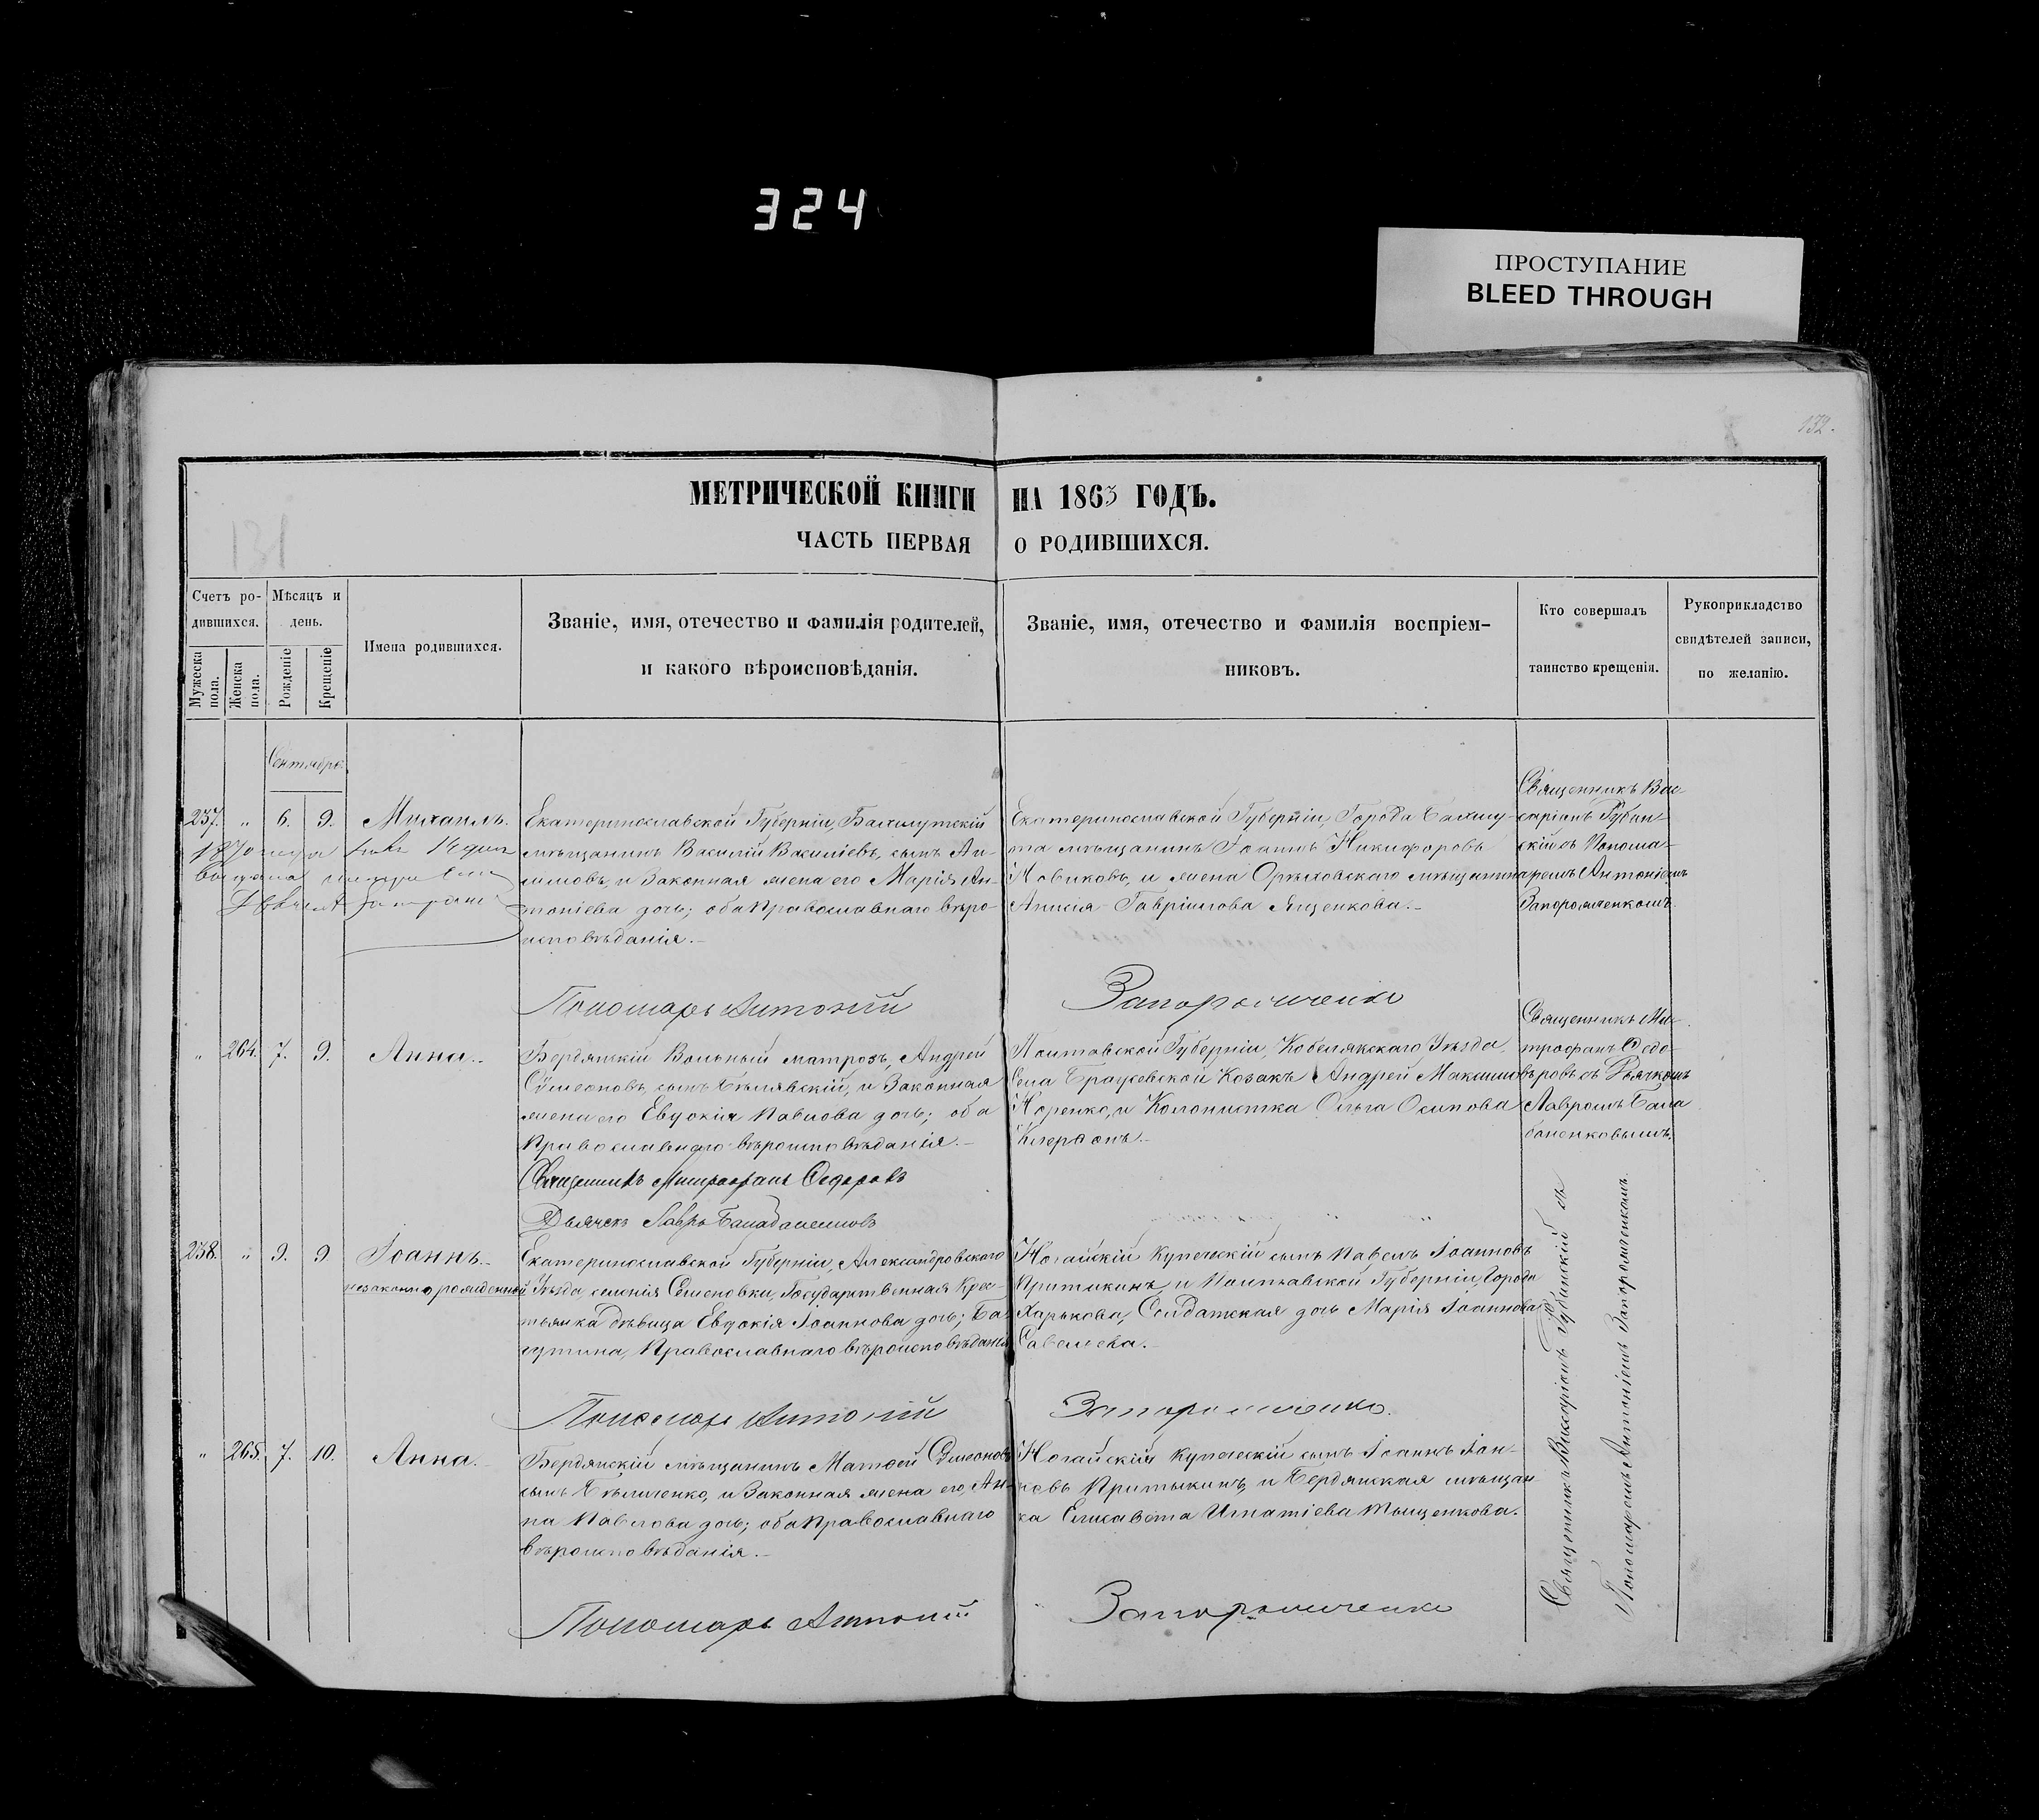 324
ПРОСТУПАНИЕ
BLEED THROUGH
132.
131
МЕТРИЧЕСКОЙ КНИГИ НА 1863 ГОДЪ.
ЧАСТЬ ПЕРВАЯ О РОДИВШИХСЯ.
Счетъ ро-
дившихся.
Мужеска пола.
Женска пола.
Мѣсяцъ и
день.
Рожденіе
Крещеніе
Имена родившихся.
Званіе, имя, отечество и фамилія родителей,
и какого вѣроисповѣданія.
Званіе, имя, отечество и фамилія воспріем-
никовъ.
Кто совершалъ
таинство крещенія.
Рукоприкладство
свидѣтелей записи,
по желанію.
Сентябрь.
237. " 6. 9. Михаилъ.
1870
Екатеринославской Губерніи, Бахмутскій
мѣщанинъ Василій Василіевъ, сынъ
и Законная жена его Марія Ан-
тоніева дочь; оба Православнаго вѣро-
исповѣданія.-
Екатеринославской Губерніи, Города Бахму-
та мѣщанинъ Іоаннъ Никифоровъ
Новиковъ, и жена Орѣховскаго мѣщанина
Анисія Гавріилова Яценкова.-
Священникъ Вис-
саріонъ Губин-
скій съ Понома-
ремъ Антоніемъ
Запорожченкомъ.
Пономарь Антоній Запорожченко
" 264. 7. 9. Анна.-
Бердянскій Вольный матрозъ, Андрей
Сѵмеоновъ, сынъ Бѣлявскій, и Законная
жена его Евдокія Павлова дочь; оба
Православнаго вѣроисповѣданія.-
Полтавской Губерніи, Кобелякскаго Уѣзда,
Села Козакъ Андрей Максимовъ
Норенко, и Колонистка Ольга Осипова
Священникъ Ми-
трофанъ Ѳедо-
ровъ съ Дьячкомъ
Лавромъ Бала
баненковымъ.
Священникъ Митрофанъ Ѳедоровъ
Дьячекъ Лавръ Балабаненковъ
238. " 9. 9. Іоаннъ.-
незаконнорожденный
Екатеринославской Губерніи, Александровскаго
Уѣзда, селенія Семеновки, Государственная Крес-
тьянка дѣвица Евдокія Іоаннова дочь;
Православнаго вѣроисповѣданія
Ногайскій Купеческій сынъ Павелъ Іоанновъ
Притыкинъ и Полтавской Губерніи, Города
Харькова, Солдатская дочь Марія Іоаннова
Савельева.-
Пономарь Антоній Запорожченко.
" 265. 7. 10. Анна.
Бердянскій мѣщанинъ Матѳей Сѵмеоновъ
сынъ Бѣличенко, и Законная жена его, Ан-
на Павлова дочь; оба Православнаго
вѣроисповѣданія.-
Ногайскій Купеческій сынъ Іоаннъ Іоан-
новъ Притыкинъ, и Бердянская мѣщан-
ка Елисавета Игнатіева Тыщенкова.
Священникъ Виссаріонъ Губинскій съ
Пономаремъ Антоніемъ Запорожченкомъ.
Пономарь Антоній Запорожченко